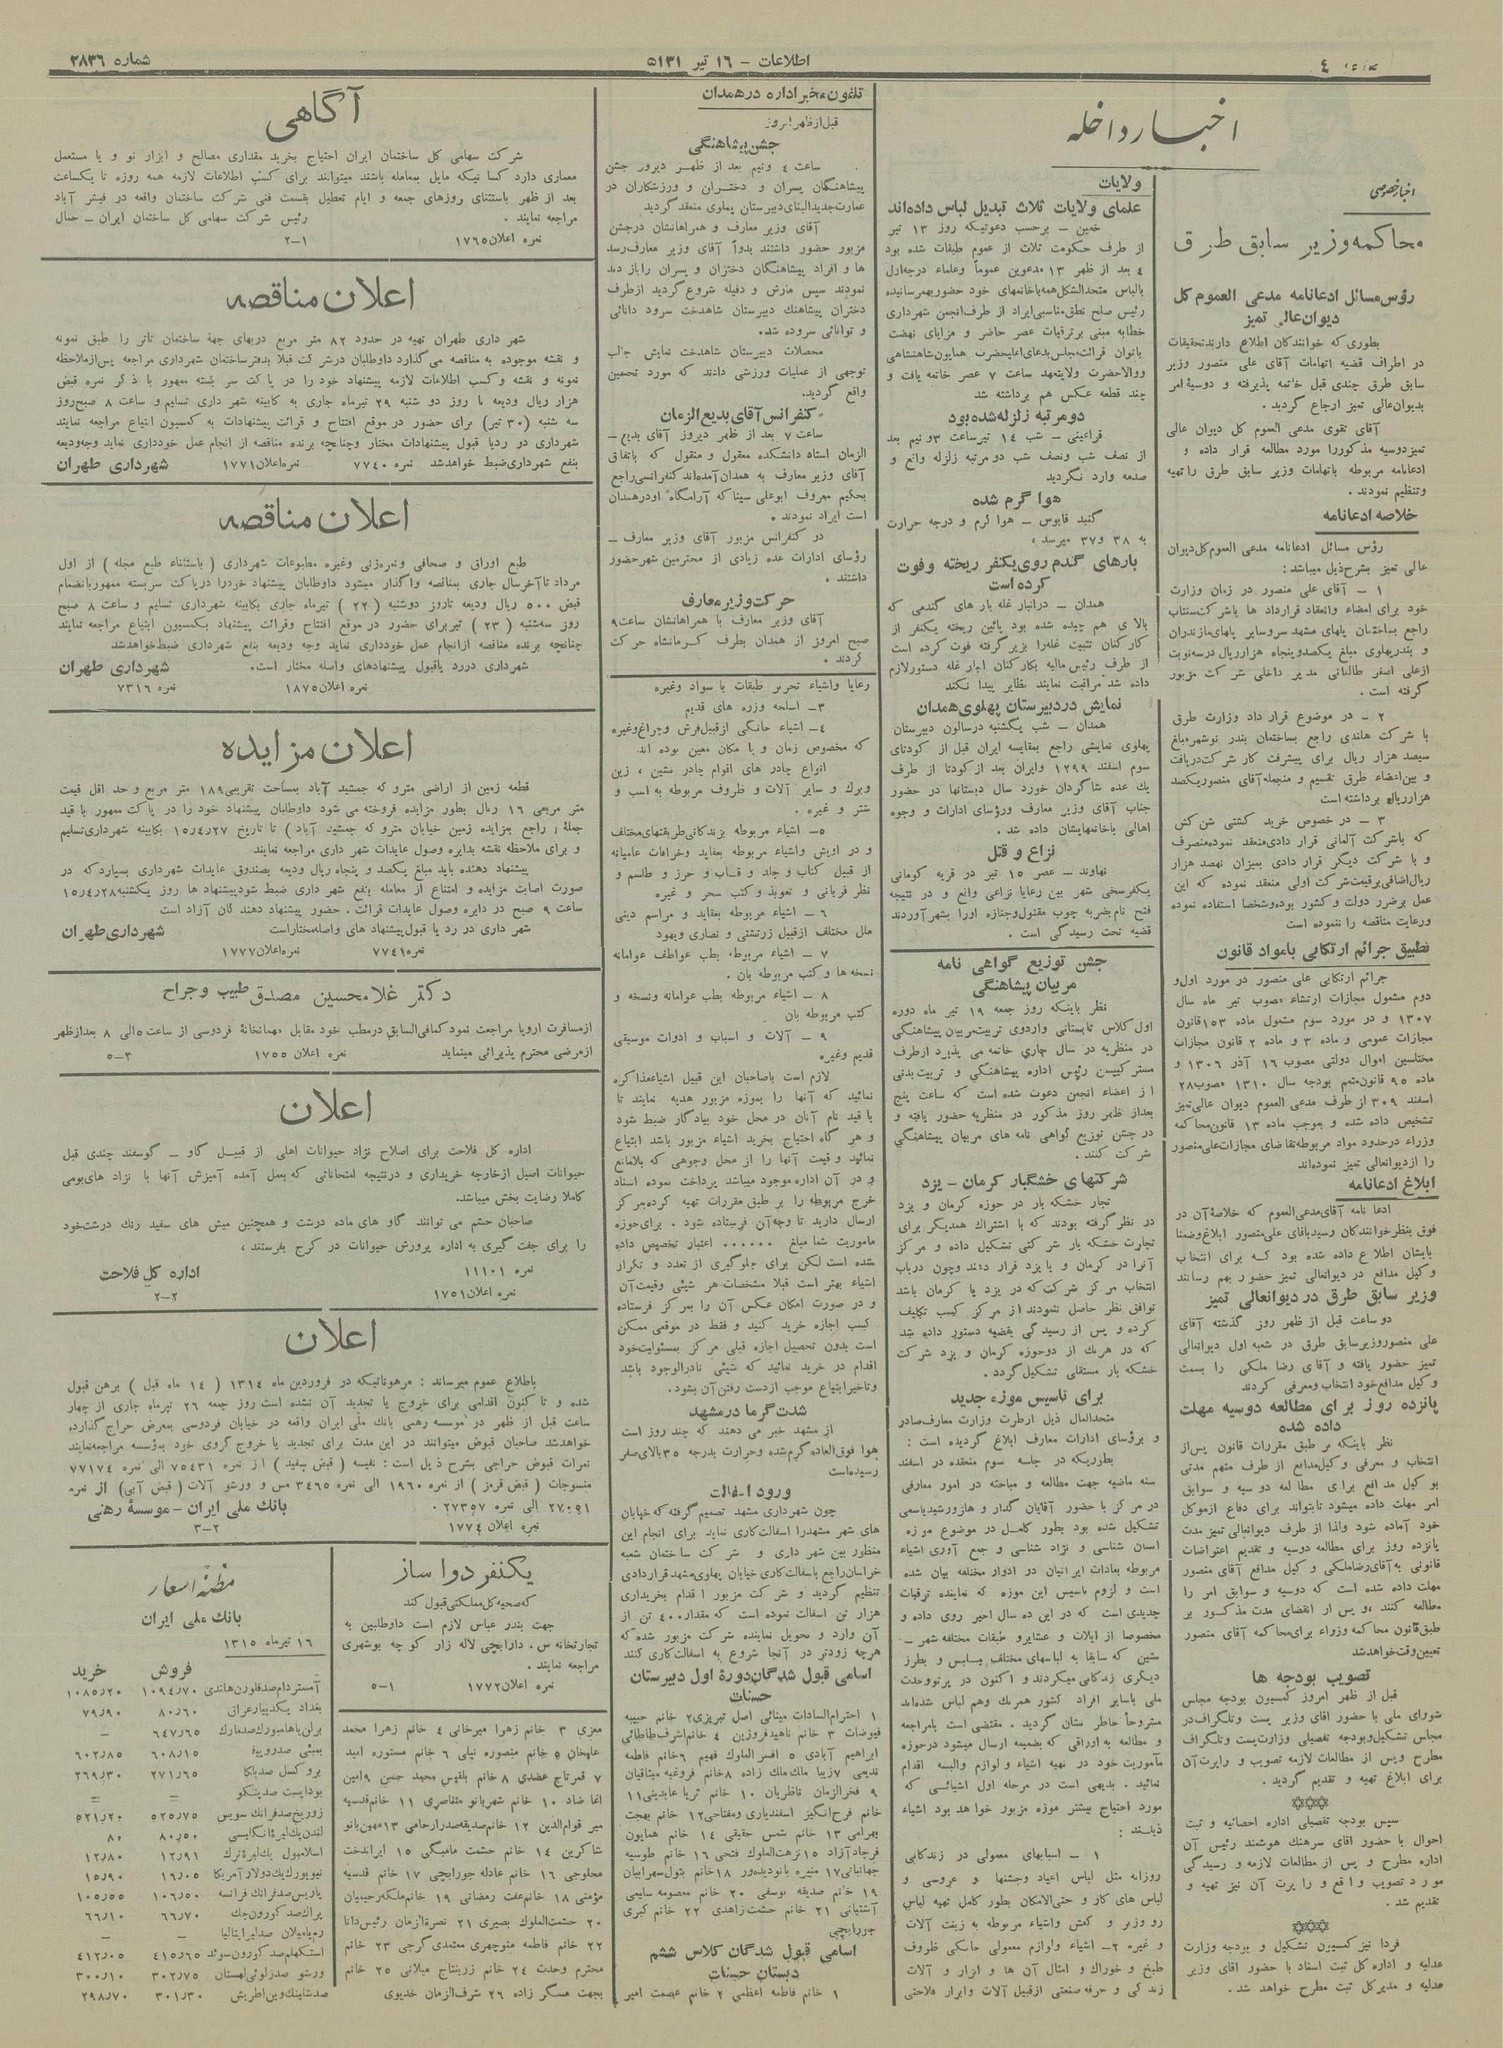 صفحه ٤
اطلاعات - ١٦ تیر ١٣١٥
شماره ٢٨٣٦
اخبار داخله
اخبار خصوصی
محاکمه وزیر سابق طرق
رؤس مسائل ادعانامه مدعی العموم کل
دیوان عالی تمیز
بطوری که خوانندگان اطلاع دارند تحقیقات
در اطراف قضیه اتهامات آقای علی منصور وزیر
سابق طرق چندی قبل خاتمه پذیرفته و دوسیه امر
بدیوان عالی تمیز ارجاع گردید .
آقای نقوی مدعی العموم کل دیوان عالی
تمیز دوسیه مذکور را مورد مطالعه قرار داده و
ادعانامه مربوطه باتهامات وزیر سابق طرق را تهیه
و تنظیم نمودند .
خلاصه ادعانامه
رؤس مسائل ادعانامه مدعی العموم کل دیوان
عالی تمیز بشرح ذیل میباشد :
١ - آقای علی منصور در زمان وزارت
خود برای امضاء وانعقاد قرارداد ها با شرکت سنتاب
راجع بساختمان پلهای مشهد سر وسایر پلهای مازندران
و بندر پهلوی مبلغ یکصد و پنجاه هزار ریال در سه نوبت
از علی اصغر طالقانی مدیر داخلی شرکت مزبور
گرفته است .
٢ - در موضوع قرار داد وزارت طرق
با شرکت هلندی راجع بساختمان بندر نوشهر مبلغ
سیصد هزار ریال برای پیشرفت کار شرکت دریافت
و بین اعضاء طرق تقسیم و منجمله آقای منصور یکصد
هزار ریال برداشته است
٣ - در خصوص خرید کشتی شن کش
که با شرکت آلمانی قرار دادی منعقد نموده منصرف
و با شرکت دیگر قرار دادی بمیزان نهصد هزار
ریال اضافی برقیمت شرکت اولی منعقد نموده که این
عمل بر ضرر دولت و کشور بوده و شخصا استفاده نموده
و رعایت مناقصه را ننموده است
تطبیق جرائم ارتکابی با مواد قانون
جرائم ارتکابی علی منصور در مورد اول و
دوم مشمول مجازات ارتشاء مصوب تیر ماه سال
١٣٠٧ و در مورد سوم مشمول ماده ١٥٣ قانون
مجازات عمومی و ماده ٣ و ماده ٢ قانون مجازات
مختلسین اموال دولتی مصوب ١٦ آذر ١٣٠٦ و
ماده ٩٥ قانون متمم بودجه سال ١٣١٠ مصوب ٢٨
اسفند ٣٠٩ از طرف مدعی العموم دیوان عالی تمیز
تشخیص داده شده و بموجب ماده ١٣ قانون محاکمه
وزراء در حدود مواد مربوطه تقاضای مجازات علی منصور
را از دیوانعالی تمیز نموده‌اند
ابلاغ ادعانامه
ادعا نامه آقای مدعی العموم که خلاصه آن در
فوق بنظر خوانندگان رسید باقای علی منصور ابلاغ وضمنا
بایشان اطلاع داده شده بود که برای انتخاب
وکیل مدافع در دیوانعالی تمیز حضور بهم رسانند
وزیر سابق طرق در دیوانعالی تمیز
دو ساعت قبل از ظهر روز گذشته آقای
علی منصور وزیر سابق طرق در شعبه اول دیوانعالی
تمیز حضور یافته و آقای رضا ملکی را بسمت
وکیل مدافع خود انتخاب و معرفی کردند
پانزده روز برای مطالعه دوسیه مهلت
داده شده
نظر باینکه بر طبق مقررات قانون پس از
انتخاب و معرفی وکیل مدافع از طرف متهم مدتی
بوکیل مدافع برای مطالعه دوسیه و سوابق
امر مهلت داده میشود تا بتواند برای دفاع از موکل
خود آماده شود ولذا از طرف دیوانعالی تمیز مدت
پانزده روز برای مطالعه دوسیه و تقدیم اعتراضات
قانونی به آقای رضا ملکی و کیل مدافع آقای منصور
مهلت داده شده است که دوسیه و سوابق امر را
مطالعه کنند ،و پس از انقضای مدت مذکور بر
طبق قانون محاکمه وزراء برای محاکمه آقای منصور
تعیین وقت خواهد شد
تصویب بودجه ها
قبل از ظهر امروز کمسیون بودجه مجلس
شورای ملی با حضور اقای وزیر پست و تلگراف در
مجلس تشکیل و بودجه تفصیلی وزارت پست و تلگراف
مطرح و پس از مطالعات لازمه تصویب و راپرت آن
برای ابلاغ تهیه و تقدیم گردید .
سپس بودجه تفصیلی اداره احصائیه و ثبت
احوال با حضور اقای سرهنگ هوشمند رئیس آن
اداره مطرح و پس از مطالعات لازمه و رسیدگی
مورد تصویب واقع و راپرت آن نیز تهیه و
تقدیم شد .
فردا نیز کمسیون تشکیل و بودجه وزارت
عدلیه و اداره کل ثبت اسناد با حضور اقای وزیر
عدلیه و مدیر کل ثبت مطرح خواهد شد .
ولایات
علمای ولایات ثلاث تبدیل لباس داده‌اند
خمین - برحسب دعوتیکه روز ١٣ تیر
از طرف حکومت ثلاث از عموم طبقات شده بود
٤ بعد از ظهر ١٣ مدعوین عموماً وعلماء درجه اول
بالباس متحدالشکل همه با خانمهای خود حضور بهمرسانیده
رئیس صلح نطق مناسبی ایراد از طرف انجمن شهرداری
خطابه مبنی بر ترقیات عصر حاضر و مزایای نهضت
بانوان قرائت مجلس بدعای اعلیحضرت همایون شاهنشاهی
ووالاحضرت ولایتعهد ساعت ٧ عصر خاتمه یافت و
چند قطعه عکس هم برداشته شد
دو مرتبه زلزله شده بود
قراعینی - شب ١٤ تیر ساعت ٣ و نیم بعد
از نصف شب ونصف شب دو مرتبه زلزله واقع و
صدمه وارد نگردید
هوا گرم شده
گنبد قابوس - هوا گرم و درجه حرارت
به ٣٨ و ٣٧ میرسد .
بارهای گندم روی یکنفر ریخته و فوت
کرده است
همدان - در انبار غله بار های گندمی که
بالای هم چیده شده بود پائین ریخته یکنفر از
کارکنان تثبیت غله را بزیر گرفته فوت کرده است
از طرف رئیس مالیه بکارکنان انبار غله دستور لازم
داده شد مراقبت نمایند نظایر پیدا نکند
نمایش در دبیرستان پهلوی همدان
همدان - شب یکشنبه در سالون دبیرستان
پهلوی نمایشی راجع بمقایسه ایران قبل از کودتای
سوم اسفند ١٢٩٩ وایران بعد از کودتا از طرف
یک عده شاگردان خورد سال دبستانها در حضور
جناب آقای وزیر معارف ورؤسای ادارات و وجوه
اهالی با خانمهایشان داده شد .
نزاع و قتل
نهاوند - عصر ١٥ تیر در قریه کومانی
یکفرسخی شهر بین رعایا نزاعی واقع و در نتیجه
فتح نام بضربه چوب مقتول و جنازه اورا بشهر آوردند
قضیه تحت رسیدگی است .
جشن توزیع گواهی نامه
مربیان پیشاهنگی
نظر باینکه روز جمعه ١٩ تیر ماه دوره
اول کلاس تابستانی واردوی تربیت مربیان پیشاهنگی
در منظریه در سال جاری خاتمه می پذیرد از طرف
مستر گیبسن رئیس اداره پیشاهنگی و تربیت بدنی
از اعضاء انجمن دعوت شده است که ساعت پنج
بعد از ظهر روز مذکور در منظریه حضور یافته و
در جشن توزیع گواهی نامه های مربیان پیشاهنگی
شرکت کنند .
شرکتهای خشگبار کرمان - یزد
تجار خشکه بار در حوزه کرمان و یزد
در نظر گرفته بودند که با اشتراک همدیگر برای
تجارت خشکه بار شرکتی تشکیل داده و مرکز
آنرا در کرمان و یا یزد قرار دهند وچون درباب
انتخاب مرکز شرکت که در یزد یا کرمان باشد
توافق نظر حاصل ننمودند از مرکز کسب تکلیف
کرده و پس از رسیدگی بقضیه دستور داده شد
که در هریک از دو حوزه کرمان و یزد شرکت
خشکه بار مستقلی تشکیل گردد .
برای تاسیس موزه جدید
متحدالمال ذیل از طرف وزارت معارف صادر
و برؤسای ادارات معارف ابلاغ گردیده است :
بطوریکه در جلسه سوم منعقده در اسفند
سنه ماضیه جهت مطالعه و مباحثه در امور معارفی
در مرکز با حضور آقایان گدار و هازور شید یاسمی
تشکیل شده بود بطور کامل در موضوع موزه
انسان شناسی و نژاد شناسی و جمع آوری اشیاء
مربوطه بعادات ایرانیان در ادوار مختلفه بیان شده
است و لزوم تاسیس این موزه که نماینده ترقیات
جدیدی است که در این ده سال اخیر روی داده و
مخصوصا از ایلات و عشایر و طبقات مختلفه شهر -
نشین که سابقا به لباسهای مختلف ملبس و بطرز
دیگری زندگانی میکردند و اکنون در پرتو وحدت
ملی با سایر افراد کشور همرنگ وهم لباس شده‌اند
مشروحاً خاطر نشان گردید . مقتضی است بامراجعه
و مطالعه به اوراقی که بضمیمه ارسال میشود در حوزه
مأموریت خود در تهیه اشیاء و لوازم والبسه اقدام
نمائید . بدیهی است در مرحله اول اشیائی که
مورد احتیاج بیشتر موزه مزبور خواهد بود اشیاء
ذیلند :
١ - اسبابهای معمولی در زندگانی
روزانه مثل لباس اعیاد وجشنها و عروسی و
لباس های کار و حتی الامکان بطور کامل تهیه لباس
رو و زیر و کفش واشیاء مربوطه به زینت آلات
و غیره ٢ - اشیاء ولوازم معمولی خانگی ظروف
طبخ و خوراک و امثال آن ها و ابزار و آلات
زندگی و حرفه صنعتی از قبیل آلات وابزار فلاحتی
تلفون مخبر اداره در همدان
قبل از ظهر امروز
جشن پیشاهنگی
ساعت ٤ ونیم بعد از ظهر دیروز جشن
پیشاهنگان پسران و دختران و ورزشکاران در
عمارت جدید البنای دبیرستان پهلوی منعقد گردید
آقای وزیر معارف و همراهانشان در جشن
مزبور حضور داشتند بدواً آقای وزیر معارف رسد
ها و افراد پیشاهنگان دختران و پسران را بازدید
نمودند سپس مارش و دفیله شروع گردید از طرف
دختران پیشاهنک دبیرستان شاهدخت سرود دانائی
و توانائی سروده شد.
محصلات دبیرستان شاهدخت نمایش جالب
توجهی از عملیات ورزشی دادند که مورد تحسین
واقع گردید.
کنفرانس آقای بدیع الزمان
ساعت ٧ بعد از ظهر دیروز آقای بدیع -
الزمان استاد دانشکده معقول و منقول که باتفاق
آقای وزیر معارف به همدان آمده‌اند کنفرانسی راجع
بحکیم معروف ابوعلی سینا که آرامگاه او در همدان
است ایراد نمودند .
در کنفرانس مزبور آقای وزیر معارف -
رؤسای ادارات عده زیادی از محترمین شهر حضور
داشتند .
حرکت وزیر معارف
آقای وزیر معارف با همراهانشان ساعت ٩
صبح امروز از همدان بطرف کرمانشاه حرکت
کردند .
رعایا واشیاء تحریر طبقات با سواد وغیره
٣- اسلحه وزره های قدیم
٤- اشیاء خانگی از قبیل فرش وچراغ وغیره
که مخصوص زمان و با مکان معین بوده اند
انواع چادر های اقوام چادر نشین ، زین
وبرک و سایر آلات و ظروف مربوطه به اسب و
شتر و غیره .
٥- اشیاء مربوطه بزندگانی طریقتهای مختلف
و دراویش واشیاء مربوطه بعقاید وخرافات عامیانه
از قبیل کتاب و جلد و قاب و حرز و طلسم و
نظر قربانی و تعویذ و کتب سحر و غیره
٦ - اشیاء مربوطه بعقاید و مراسم دینی
ملل مختلف از قبیل زرتشتی و نصاری ویهود
٧ - اشیاء مربوطه بطب عواطف عوامانه
نسخه ها و کتب مربوطه بان .
٨ - اشیاء مربوطه بطب عوامانه ونسخه و
کتب مربوطه بان
٩ - آلات و اسباب و ادوات موسیقی
قدیم وغیره
لازم است با صاحبان این قبیل اشیاء مذاکره
نمائید که آنها را بموزه مزبور هدیه نمایند تا
با قید نام آنان در محل خود بیادگار ضبط شود
و هر گاه احتیاج بخرید اشیاء مزبور باشد ابتیاع
نمائید و قیمت آنها را از محل وجوهی که بلامانع
و در آن اداره موجود میباشد پرداخت نموده اسناد
خرج مربوطه را بر طبق مقررات تهیه کرده مرکز
ارسال دارید تا وجه آن فرستاده شود . برای حوزه
ماموریت شما مبلغ ...... اعتبار تخصیص داده
شده است لکن برای جلوگیری از تعدد و تکرار
اشیاء بهتر است قبلا مشخصات هر شیئی وقیمت آن
و در صورت امکان عکس آن را بمرکز فرستاده
کسب اجازه خرید کنید و فقط در موقعی ممکن
است بدون تحصیل اجازه قبلی مرکز بمسئولیت خود
اقدام در خرید نمائید که شیئی نادرالوجود باشد
وتاخیر ابتیاع موجب از دست رفتن آن بشود.
شدت گرما در مشهد
از مشهد خبر می دهند که چند روز است
هوا فوق العاده گرم شده وحرارت بدرجه ٣٥ بالای صفر
رسیده است
ورود اسفالت
چون شهرداری مشهد تصمیم گرفته که خیابان
های شهر مشهد را اسفالت کاری نماید برای انجام این
منظور بین شهر داری و شرکت ساختمان شعبه
خراسان راجع باسفالت کاری خیابان پهلوی مشهد قراردادی
تنظیم گردید و شرکت مزبور اقدام بخریداری
هزار تن اسفالت نموده است که مقدار ٤٠٠ تن از
آن وارد و تحویل نماینده شرکت مزبور شده که
هرچه زودتر در آنجا شروع به اسفالت کاری کنند
اسامی قبول شدگان دوره اول دبیرستان
حسنات
١ احترام السادات مینائی اصل تبریزی ٢ خانم حبیبه
فیوضات ٣ خانم ناهید فروزین ٤ خانم اشرف طاطائی
ابراهیم آبادی ٥ افسر الملوک فهیم ٦ خانم فاطمه
قدیمی ٧ زیبا ملک ملک زاده ٨ خانم فروغیه میثاقیان
٩ فخرالزمان ناظریان ١٠ خانم ثریا عابدینی ١١
خانم فرح انگیز اسفندیاری ومفتاحی ١٢ خانم بهجت
بهرامی ١٣ خانم شمس حقیقی ١٤ خانم همایون
فرجاد آزاد ١٥ نزهت الملوک فتحی ١٦ خانم طوسیه
جهانبانی ١٧ منیره بانو دیده‌ور ١٨ خانم بتول سهرابیان
١٩ خانم صدیقه یوسفی ٢٠ خانم معصومه سلیمی
آشتیانی ٢١ خانم حشمت زاهدی ٢٢ خانم کبری
جورابچی
اسامی قبول شدگان کلاس ششم
دبستان حسنات
١ خانم فاطمه اعظمی ٢ خانم عصمت امیر
معزی ٣ خانم زهرا میرخانی ٤ خانم زهرا محمد
علیخان ٥ خانم منصوره نیلی ٦ خانم مستوره امید
٧ قمر تاج عضدی ٨ خانم بلقیس محمد حسن ٩ امین
اغا ضاد ١٠ خانم شهربانو مقاصری ١١ خانم قدسیه
میر قوام الدین ١٢ خانم صدیقه صدر ارحامی ١٣ مهین بانو
شاکرین ١٤ خانم حشمت مامبگی ١٥ ایراندخت
محلوجی ١٦ خانم عادله جورابچی ١٧ خانم قدسیه
مؤمنی ١٨ خانم عفت رمضانی ١٩ خانم ملکه رحیمیان
٢٠ حشمت الملوک بصیری ٢١ نصرة الزمان رئیس دانا
٢٢ خانم فاطمه منوچهری معتمدی گرجی ٢٣ خانم
محترم وحدت ٢٤ خانم زرینتاج میلانی ٢٥ خانم
بجهت مسگر زاده ٢٦ شرف الزمان خدیوی
آگاهی
شرکت سهامی کل ساختمان ایران احتیاج بخرید مقداری مصالح و ابزار نو و یا مستعمل
معماری دارد کسانیکه مایل بمعامله باشند میتوانند برای کسب اطلاعات لازمه همه روزه تا یکساعت
بعد از ظهر باستثنای روزهای جمعه و ایام تعطیل بقسمت فنی شرکت ساختمان واقعه در فیشر آباد
مراجعه نمایند . رئیس شرکت سهامی کل ساختمان ایران - جمال
نمره اعلان ١٧٦٥ ١-٢
اعلان مناقصه
شهر داری طهران تهیه در حدود ٨٢ متر مربع دربهای جهة ساختمان تآتر را طبق نمونه
و نقشه موجوده به مناقصه می‌گذارد داوطلبان در شرکت قبلا بدفتر ساختمان شهرداری مراجعه پس از ملاحظه
نمونه و نقشه و کسب اطلاعات لازمه پیشنهاد خود را در پاکت سر بسته ممهور با ذکر نمره قبض
هزار ریال ودیعه تا روز دو شنبه ٢٩ تیرماه جاری به کابینه شهر داری تسلیم و ساعت ٨ صبح روز
سه شنبه (٣٠ تیر) برای حضور در موقع افتتاح و قرائت پیشنهادات به کمسیون ابتیاع مراجعه نمایند
شهرداری در رد یا قبول پیشنهادات مختار و چنانچه برنده مناقصه از انجام عمل خودداری نماید وجه ودیعه
بنفع شهرداری ضبط خواهد شد نمره ٧٧٤٠ نمره اعلان ١٧٧١ شهرداری طهران
اعلان مناقصه
طبع اوراق و صحافی و نمره زنی وغیره مطبوعات شهرداری ( باستثناء طبع مجله ) از اول
مرداد تا آخر سال جاری بمناقصه واگذار میشود داوطلبان پیشنهاد خود را در پاکت سربسته ممهور بانضمام
قبض ٥٠٠ ریال ودیعه تا روز دوشنبه ( ٢٢ ) تیرماه جاری بکابینه شهرداری تسلیم و ساعت ٨ صبح
روز سه‌شنبه ( ٢٣ ) تیر برای حضور در موقع افتتاح وقرائت پیشنهاد بکمسیون ابتیاع مراجعه نمایند
چنانچه برنده مناقصه از انجام عمل خودداری نماید وجه ودیعه بنفع شهرداری ضبط خواهد شد
شهرداری در رد یا قبول پیشنهادهای واصله مختار است. شهرداری طهران
نمره اعلان ١٨٧٥ نمره ٧٣١٦
اعلان مزایده
قطعه زمین از اراضی مترو که جمشید آباد بمساحت تقریبی ١٨٩ متر مربع و حد اقل قیمت
متر مربعی ١٦ ریال بطور مزایده فروخته می شود داوطلبان پیشنهاد خود را در پاکت ممهور با قید
جملهٔ ( راجع بمزایده زمین خیابان مترو که جمشید آباد ) تا تاریخ ١٥/٤/٢٧ بکابینه شهرداری تسلیم
و برای ملاحظه نقشه بدایره وصول عایدات شهر داری مراجعه نمایند
پیشنهاد دهنده باید مبلغ یکصد و پنجاه ریال ودیعه بصندوق عایدات شهرداری بسپارد که در
صورت اصابت مزایده و امتناع از معامله بنفع شهرداری ضبط شود پیشنهاد ها روز یکشنبه ١٥/٤/٢٨
ساعت ٩ صبح در دایره وصول عایدات قرائت . حضور پیشنهاد دهندگان آزاد است
شهر داری در رد یا قبول پیشنهاد های واصله مختار است شهرداری طهران
نمره ٧٧٤١ نمره اعلان ١٧٧٧
دکتر غلامحسین مصدق طبیب و جراح
از مسافرت اروپا مراجعت نمود کمافی السابق در مطب خود مقابل مهمانخانهٔ فردوسی از ساعت ٥ الی ٨ بعد از ظهر
از مرضی محترم پذیرائی مینماید نمره اعلان ١٧٥٥ ٣-٥
اعلان
اداره کل فلاحت برای اصلاح نژاد حیوانات اهلی از قبیل گاو - گوسفند چندی قبل
حیوانات اصیل از خارجه خریداری و در نتیجه امتحاناتی که بعمل آمده آمیزش آنها با نژاد های بومی
کاملا رضایت بخش میباشد.
صاحبان حشم می توانند گاو های ماده درشت و همچنین میش های سفید رنک درشت خود
را برای جفت گیری به اداره پرورش حیوانات در کرج بفرستند ،
نمره ١١١٠١ اداره کل فلاحت
نمره اعلان ١٧٥١ ٢-٢
اعلان
باطلاع عموم میرساند : مرهوناتیکه در فروردین ماه ١٣١٤ ( ١٤ ماه قبل ) برهن قبول
شده و تا کنون اقدامی برای خروج یا تجدید آن نشده است روز جمعه ٢٦ تیرماه جاری از چهار
ساعت قبل از ظهر در موسسه رهنی بانک ملی ایران واقعه در خیابان فردوسی بمعرض حراج گذارده
خواهد شد صاحبان قبوض میتوانند در این مدت برای تجدید یا خروج گروی خود بمؤسسه مراجعه نمایند
نمرات قبوض حراجی بشرح ذیل است : نفیسه ( قبض سفید ) از نمره ٧٥٤٣١ الی نمره ٧٧١٧٤
منسوجات ( قبض قرمز ) از نمره ١٩٦٠ الی نمره ٣٤٦٥ مس و ورشو آلات ( قبض آبی ) از نمره
٢٧٠٩١ الی نمره ٢٧٣٥٧ . بانک ملی ایران - موسسهٔ رهنی
نمره اعلان ١٧٧٤ ٢-٣
یکنفر دوا ساز
که صحیه کل مملکتی قبول کند
جهت بندر عباس لازم است داوطلبین به
تجارتخانه س . دارابچی لاله زار کوچه بوشهری
مراجعه نمایند .
نمره اعلان ١٧٧٢ ١-٥
مظنه اسعار
بانک ملی ایران
١٦ تیر ماه ١٣١٥
فروش خرید
آمستردام صد فلورن هلندی ١٠٩٤/٧٠ ١٠٨٥/٢٠
بغداد یکدینار عراقی ٨٠/٦٠ ٧٩/٩٠
برلن یا هامبورک صد مارک ٦٤٧/٦٥ -
بمبئی صد روپیه ٦٠٨/١٥ ٦٠٢/٨٥
بروکسل صد بلگا ٢٧١/٦٥ ٢٦٩/٣٠
بوداپست صد پنگو = =
زوریخ صد فرانک سویس ٥٢٥/٧٥ ٥٢١/٢٠
لندن یک لیرهٔ انگلیسی ٨٠/٥٠ ٨٠
اسلامبول یک لیرهٔ ترک ١٢/٩١ ١٢/٨٠
نیویورک یک دولار آمریکا ١٦/٠٥ ١٥/٩٠
پاریس صد فرانک فرانسه ١٠٦/٥٠ ١٠٥/٥٥
پراک صد کورون چک ٦٦/٧٠ ٦٦/١٠
رم یا میلان صد لیر ایتالیا - -
استکهلم صد کورون سوئد ٤١٥/٦٥ ٤١٢/٠٥
ورشو صد زلوتی لهستان ٣٠٢/٧٥ ٣٠٠/١٠
صد شلینک وین اطریش ٣٠١/٣٠ ٢٩٨/٧٠